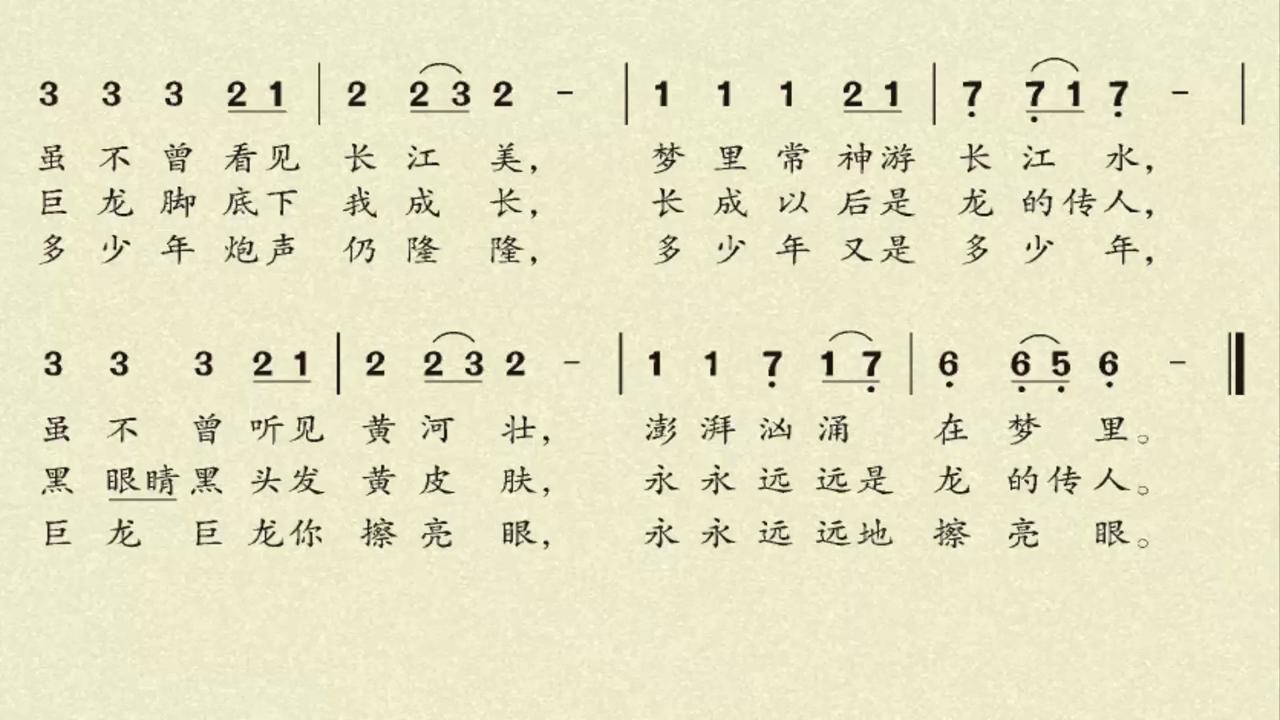 3 3 3 2 1 | 2 2 3 2 - | 1 1 1 2 1 | 7 7 1 7 - |
虽不曾看见长江美, 梦里常神游长江水,
巨龙脚底下我成长, 长成以后是龙的传人,
多少年炮声仍隆隆, 多少年又是多少年,
3 3 3 2 1 | 2 2 3 2 - | 1 1 7 1 7 | 6 6 5 6 - ‖
虽不曾听见黄河壮, 澎湃汹涌在梦里。
黑眼睛黑头发黄皮肤, 永永远远是龙的传人。
巨龙巨龙你擦亮眼, 永永远远地擦亮眼。